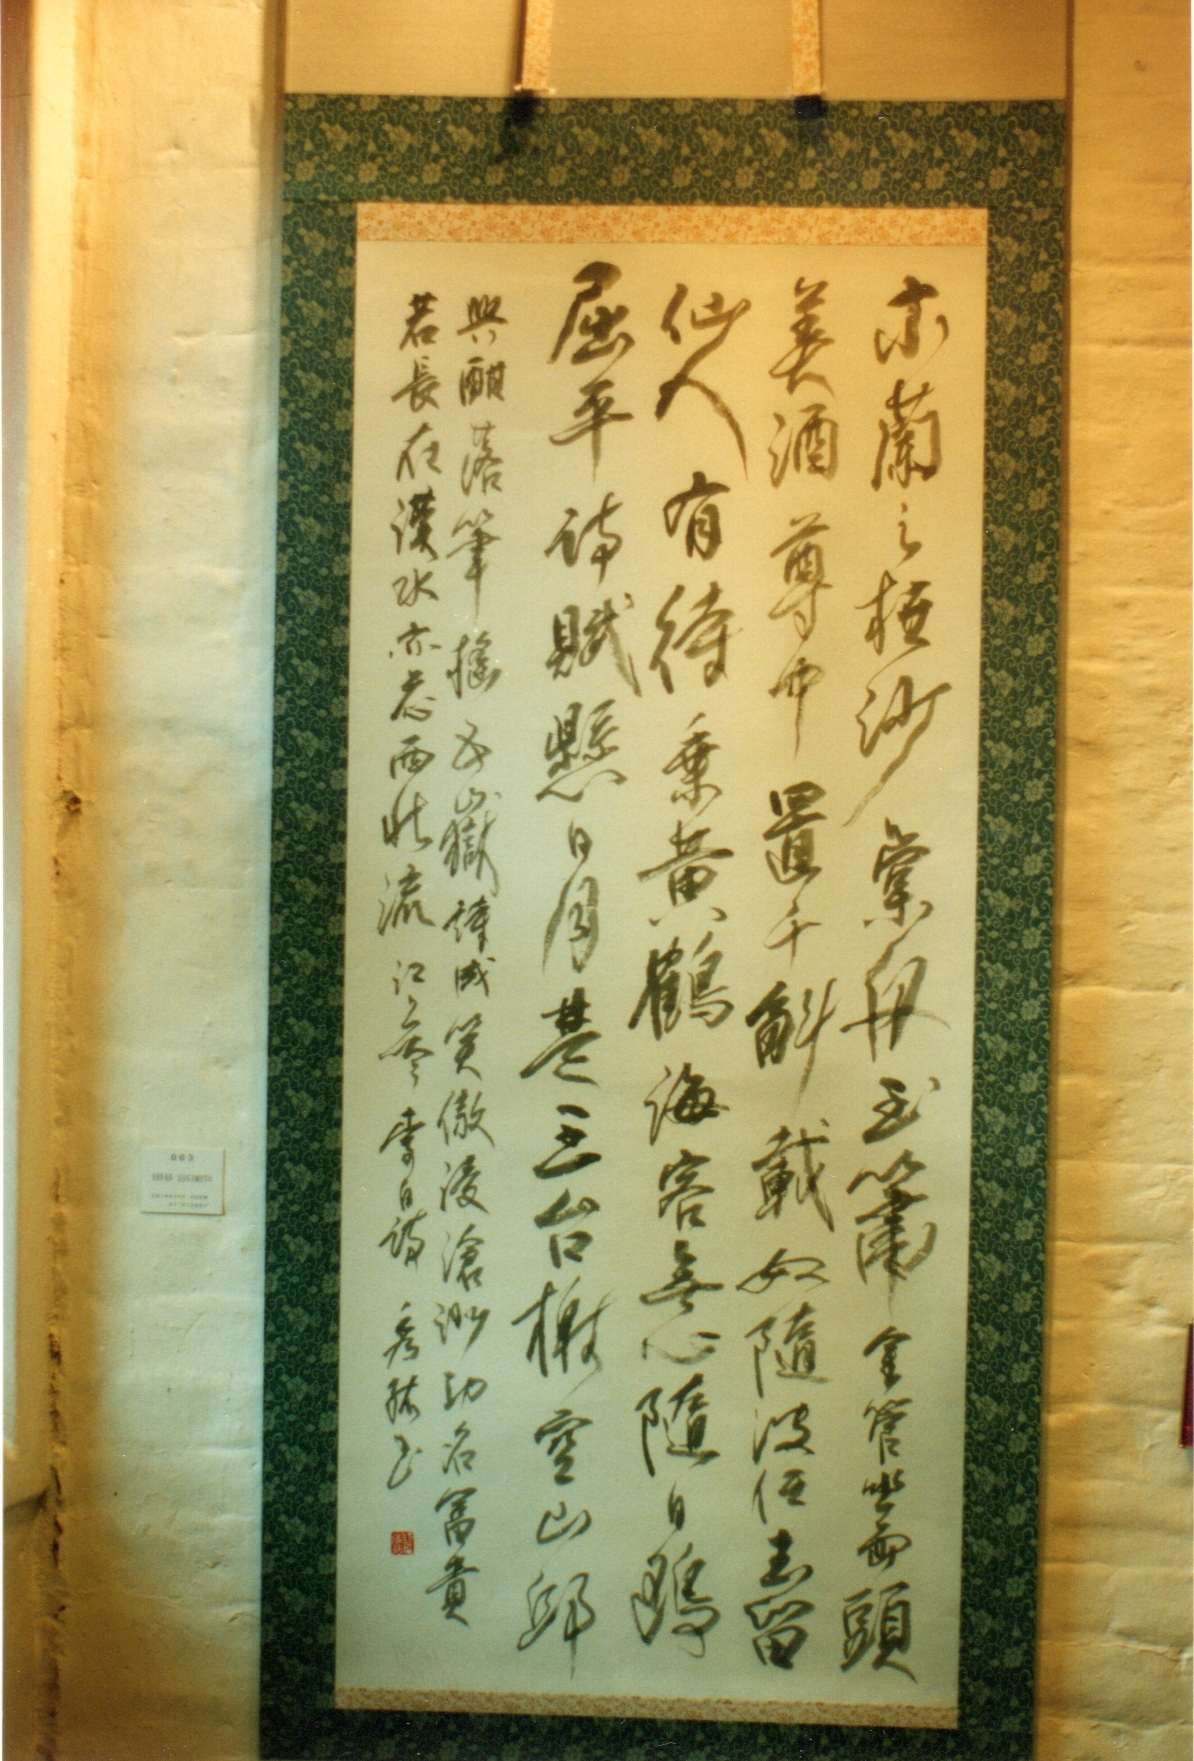 木蘭之枻沙棠舟玉簫金管坐兩頭
美酒尊中置千斛載妓隨波任去留
仙人有待乘黃鶴海客無心隨白鷗
屈平詞賦懸日月楚王台榭空山邱
興酣落筆搖五嶽詩成笑傲凌滄洲功名富貴
若長在漢水亦應西北流 江上吟 李白詩
003
SUGIMOTO